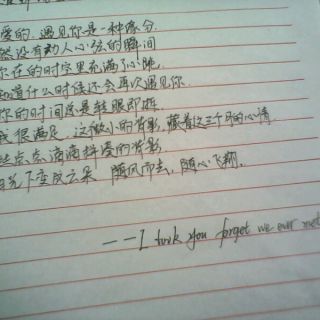 爱的，遇见你是一种缘分
然没有动人心弦的瞬间
你在的时空里充满了心跳
知道什么时候还会再次遇见你
你的时间总是转眼即逝
我很满足，这微小的背影，藏着这三个月的心情
点点滴滴抖落的背影
下变成云朵 随风而去，随心飞翔。
——I took you forget we ever met